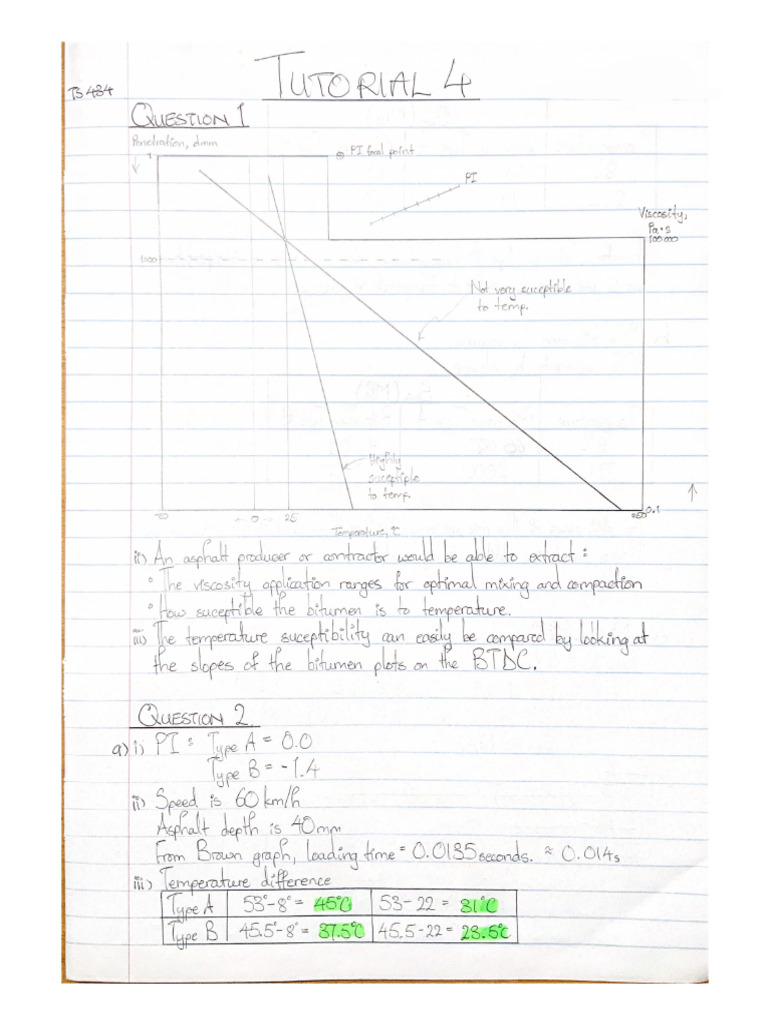 TUTORIAL 4
TS 484
QUESTION 1
Penetration, dmm
1
PI focal point
PI
Viscosity,
Pa·s
100 000
1000
Not very suceptible
to temp.
Highly
suceptible
to temp.
0.1
-0-
25
250
Temperature, °C
ii) An asphalt producer or contractor would be able to extract:
• The viscosity application ranges for optimal mixing and compaction
• How suceptible the bitumen is to temperature.
iii) The temperature suceptibility can easily be compared by looking at
the slopes of the bitumen plots on the BTDC.
QUESTION 2.
a) i) PI: Type A = 0.0
Type B = -1.4
ii) Speed is 60 km/h
Asphalt depth is 40mm
From Brown graph, loading time = 0.0135 seconds. ≈ 0.014s
iii) Temperature difference
Type A 53°-8° = 45°C 53-22 = 31°C
Type B 45.5°-8° = 37.5°C 45.5-22 = 23.5°C